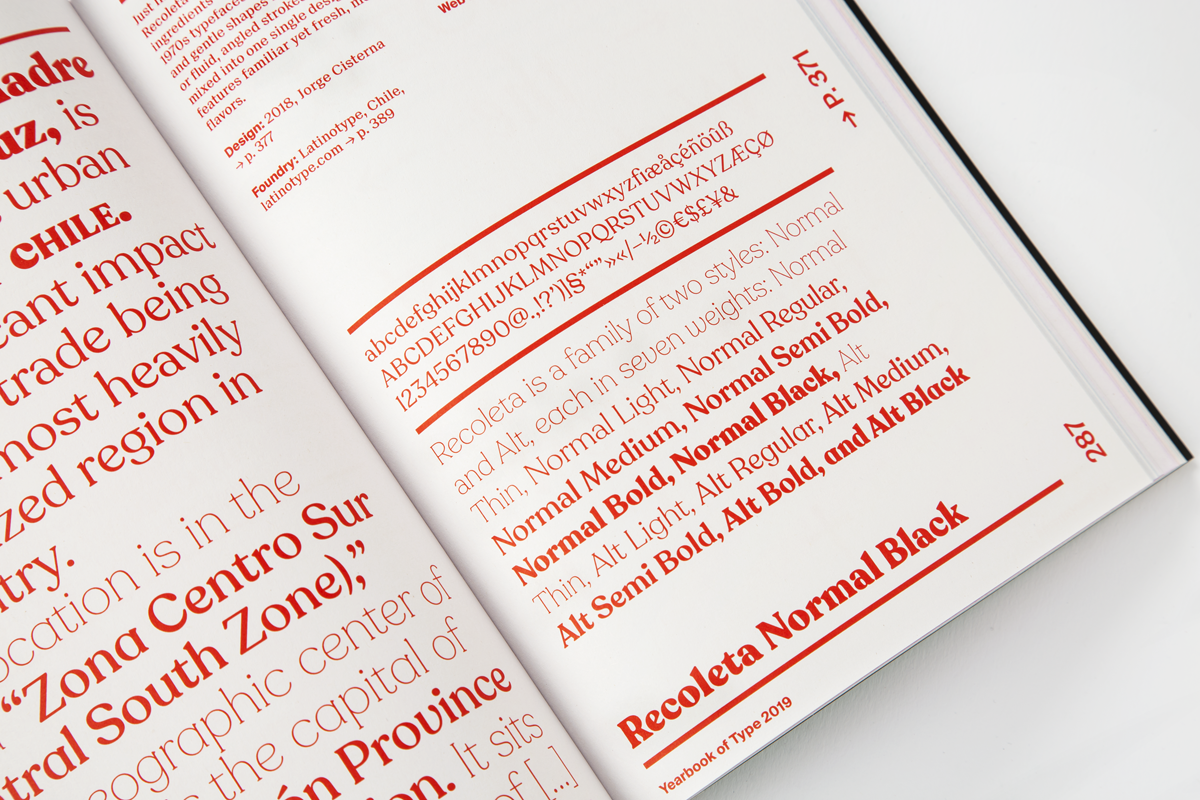 adre
uz, is
urban
CHILE.
cant impact
trade being
most heavily
zed region in
try.
ocation is in the
“Zona Centro Sur
tral South Zone),”
eographic center of
s the capital of
ón Province
on. It sits
of [...]
Just
Recoleta
ingredients
1970s typeface
and gentle shapes
or fluid, angled strokes
mixed into one single design
features familiar yet fresh,
flavors.
Design: 2018, Jorge Cisterna
→ p. 377
Foundry: Latinotype, Chile,
latinotype.com → p. 389
Web
→ P.371
abcdefghijklmnopqrstuvwxyzfiæåçéñöûß
ABCDEFGHIJKLMNOPQRSTUVWXYZÆÇØ
1234567890@.,:!?’)]§*“”»«/–½©€$£¥&
Recoleta is a family of two styles: Normal
and Alt, each in seven weights: Normal
Thin, Normal Light, Normal Regular,
Normal Medium, Normal Semi Bold,
Normal Bold, Normal Black, Alt
Thin, Alt Light, Alt Regular, Alt Medium,
Alt Semi Bold, Alt Bold, and Alt Black
287
Recoleta Normal Black
Yearbook of Type 2019